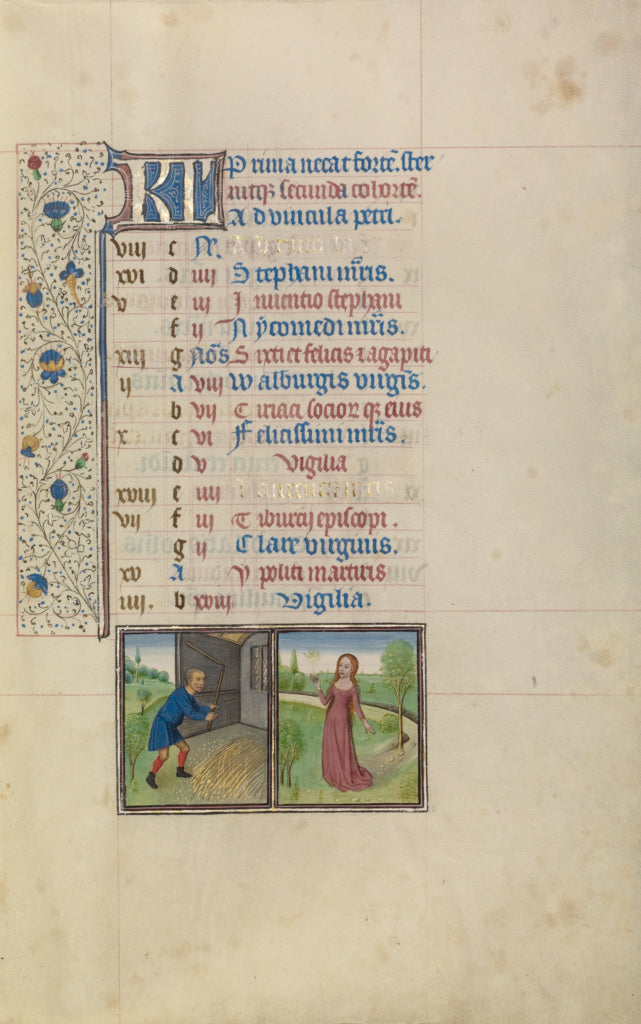 KL Prima necat fortē. ster
nitq; secunda cohortē.
Ad vincula petri.
viii c
xvi d iiii Stephani mr̄is.
v e iii Inuentio stephani
f ii Nycomedi mr̄is.
xiii g Noŝ Sixti et felicis ⁊ agapiti
ii A viii Walburgis virgīs.
b vii Ciriaci socior̄ q; eius
x c vi Felicissimi mr̄is.
d v Vigilia
xviii e iiii
vii f iii Tiburcij episcopi.
g ii Clare virginis.
xv A Ypoliti martiris
iiii. b xviii Vigilia.